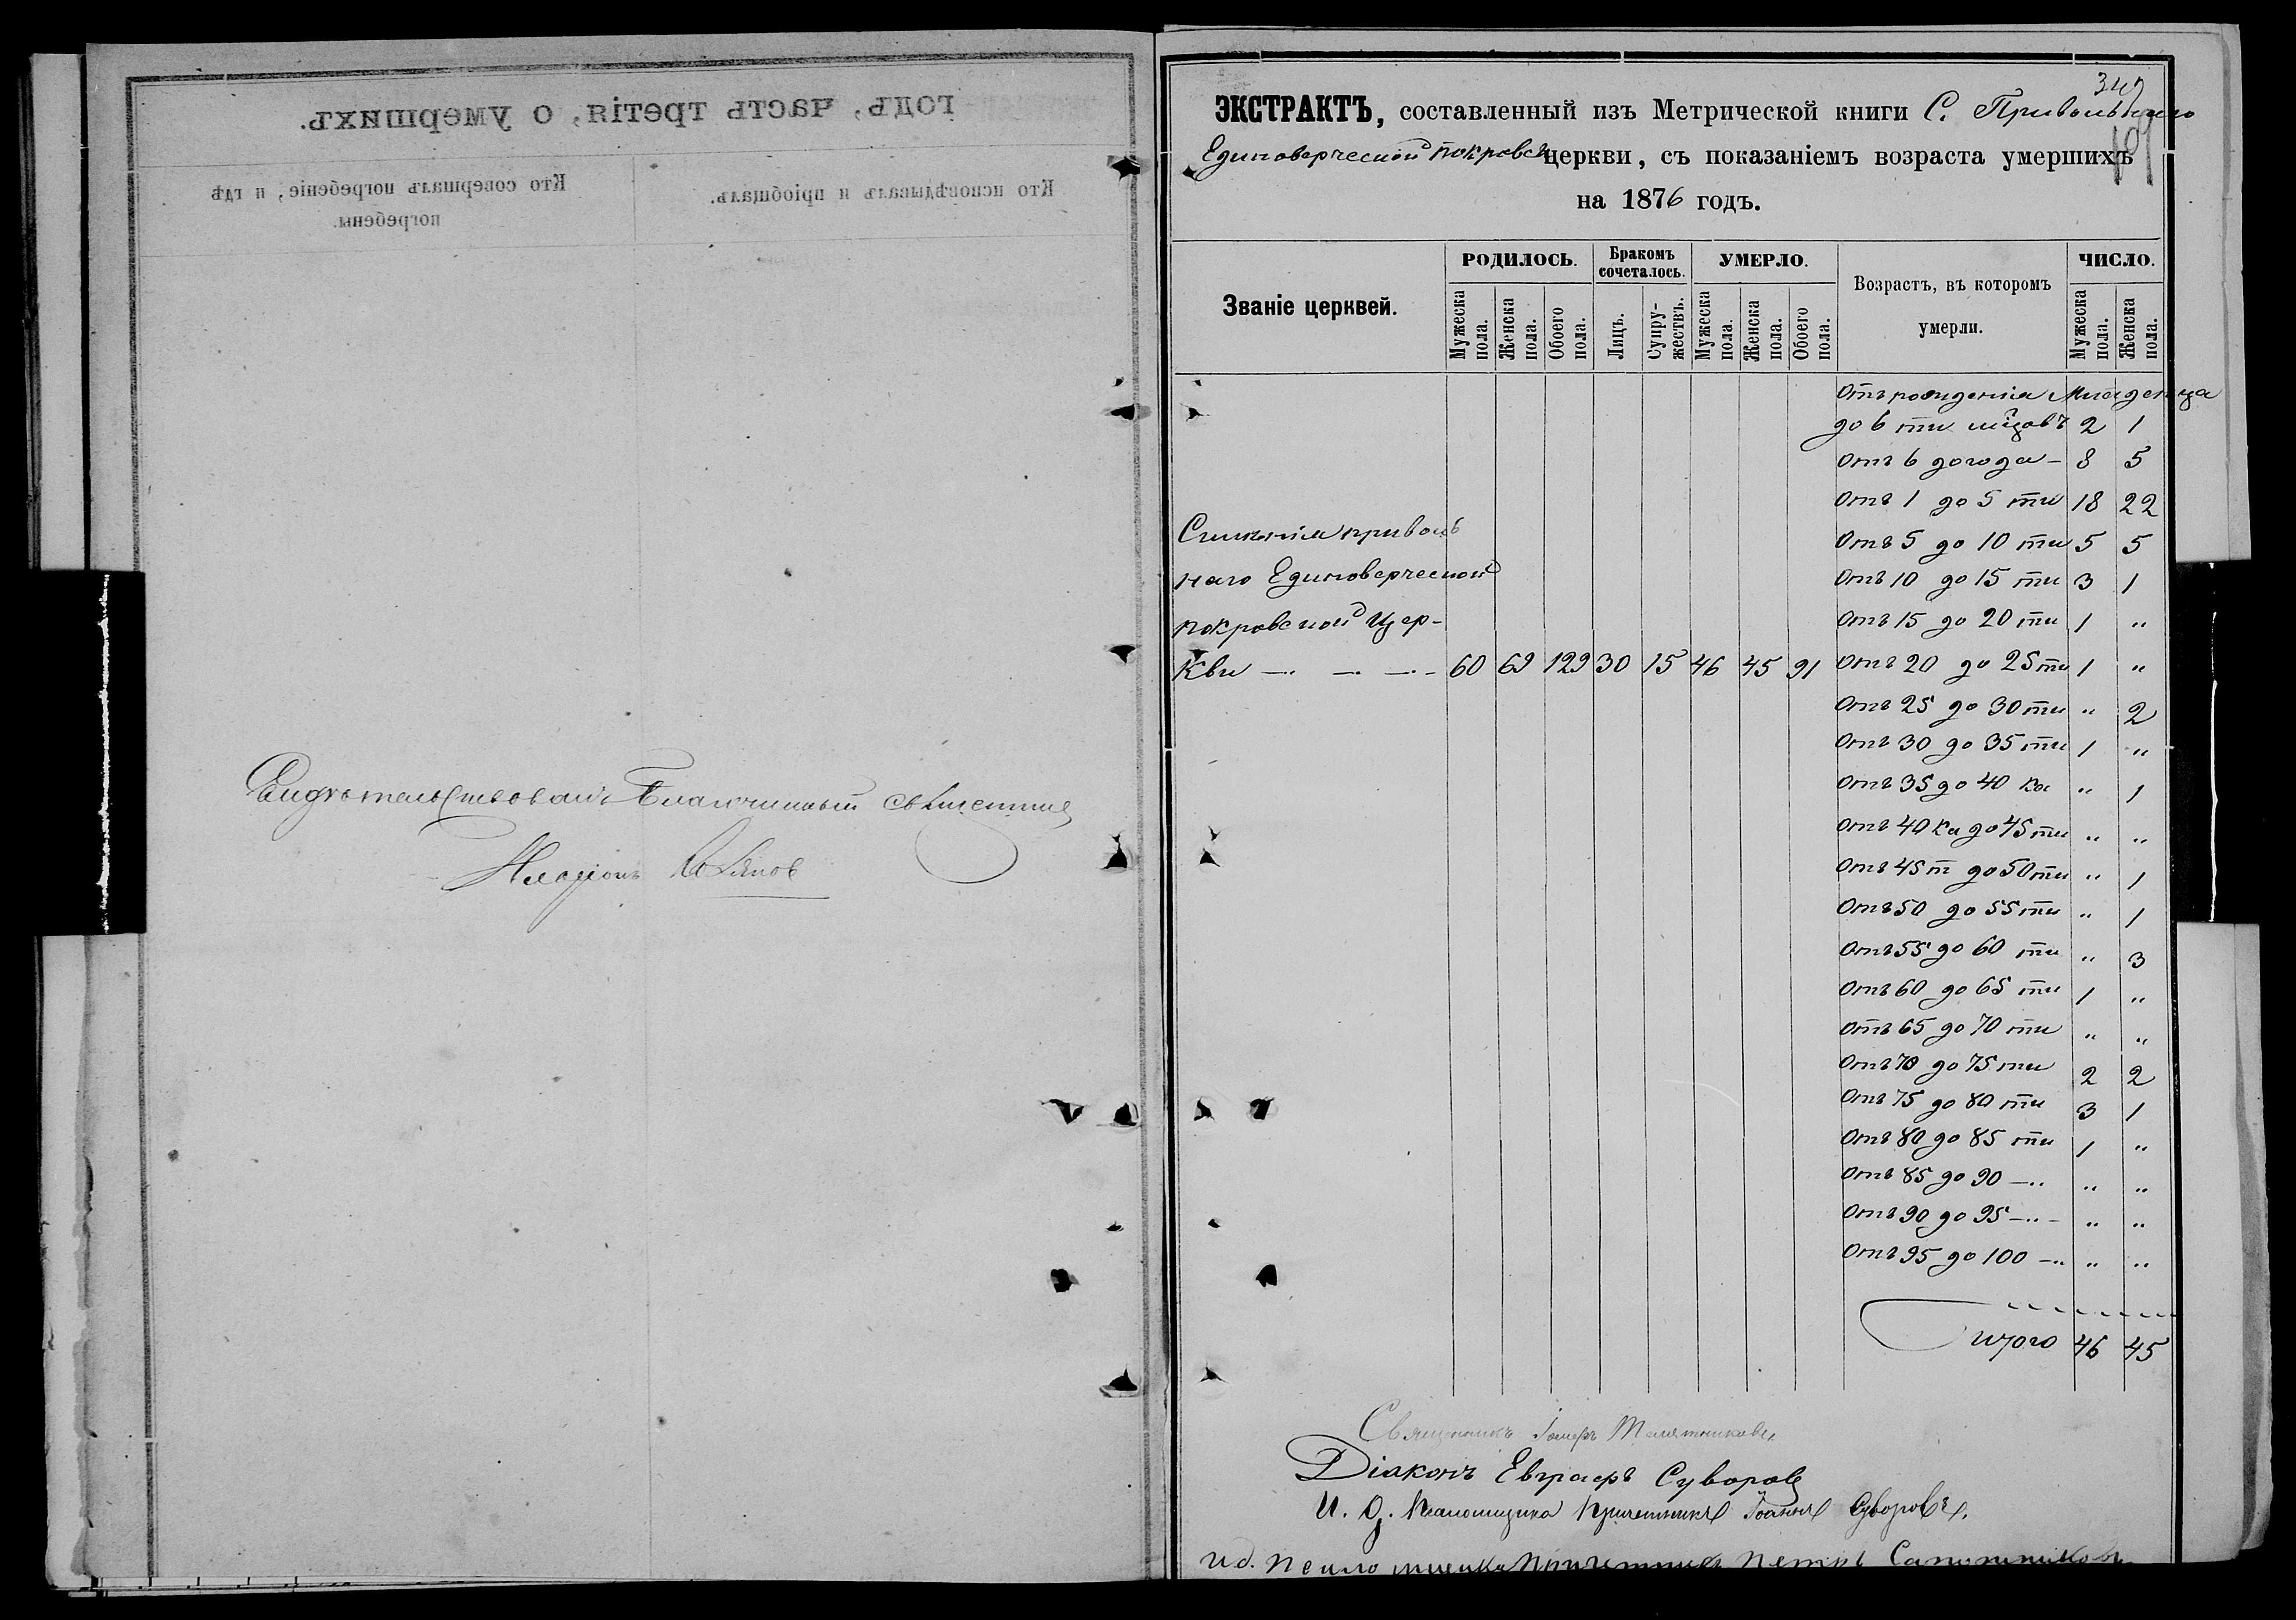 годъ, часть третія, о умершихъ.
Кто исповѣдывалъ и пріобщалъ.
Кто совершалъ погребеніе, и гдѣ
погребены.
Свидѣтельствовалъ Благочинный священник
Иларіонъ
ЭКСТРАКТЪ, составленный изъ Метрической книги С. Привольнаго
Единоверческой покровск церкви, съ показаніемъ возраста умершихъ
на 1876 годъ.
Званіе церквей.
РОДИЛОСЬ.
Бракомъ сочеталось.
УМЕРЛО.
Возрастъ, въ которомъ умерли.
ЧИСЛО.
Мужеска пола. Женска пола. Обоего пола. Лицъ. Супружествъ. Мужеска пола. Женска пола. Обоего пола. Мужеска пола. Женска пола.
Отъ рожденія младенца
до 6 ти 2 1
Отъ 6 до года – 8 5
Отъ 1 до 5 ти 18 22
Отъ 5 до 10 ти 5 5
Отъ 10 до 15 ти 3 1
Отъ 15 до 20 ти 1 „
приволь
наго Единоверческой
покровской Цер-
кви 60 69 129 30 15 46 45 91
Отъ 20 до 25 ти 1 „
Отъ 25 до 30 ти „ 2
Отъ 30 до 35 ти 1 „
Отъ 35 до 40 ка „ 1
Отъ 40 ка до 45 ти „ „
Отъ 45 т до 50 ти „ 1
Отъ 50 до 55 ти „ 1
Отъ 55 до 60 ти „ 3
Отъ 60 до 65 ти 1 „
Отъ 65 до 70 ти „ „
Отъ 70 до 75 ти 2 2
Отъ 75 до 80 ти 3 1
Отъ 80 до 85 ти 1 „
Отъ 85 до 90 „ „
Отъ 90 до 95 „ „
Отъ 95 до 100 „ „
итого 46 45
Священникъ
Діаконъ Евграфъ Суворов
И. д. Псаломщика Причетникъ Іоаннъ Суворовъ.
И д. Псаломщика Причетникъ Петръ